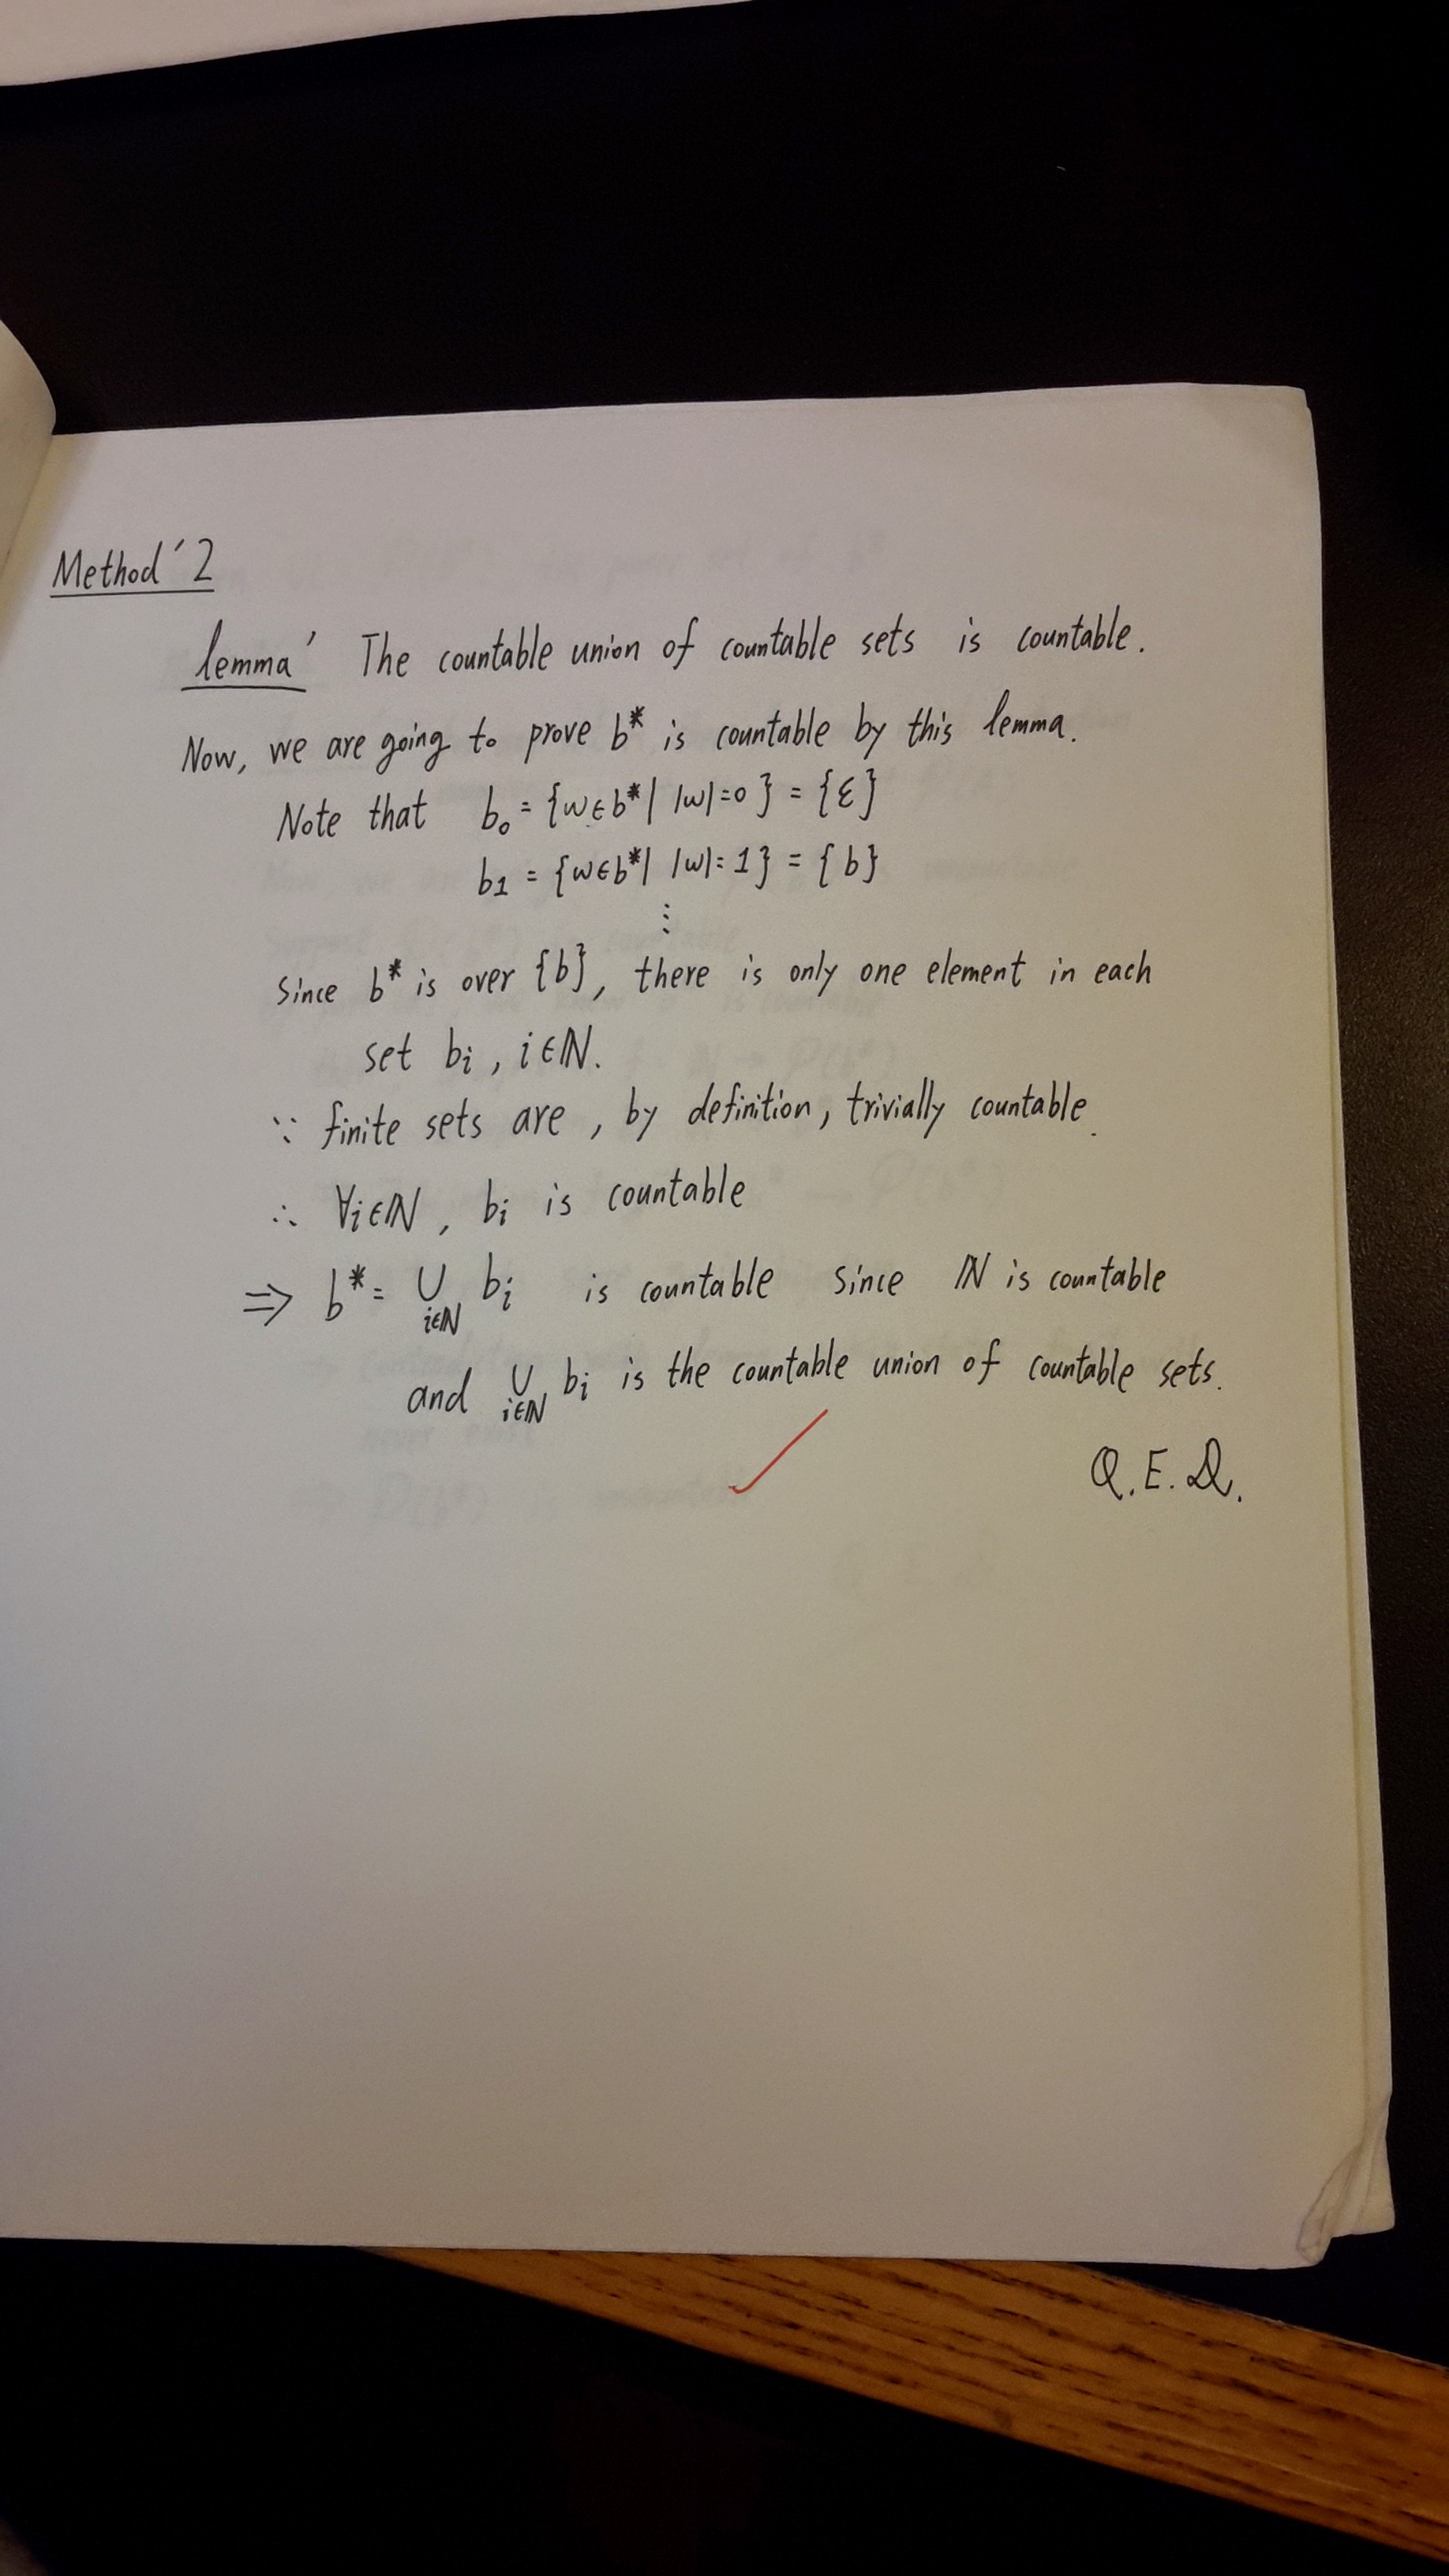 Method' 2
lemma' The countable union of countable sets is countable.
Now, we are going to prove b* is countable by this lemma.
Note that b₀ = {w∈b* | |w|=0} = {ε}
b₁ = {w∈b* | |w|=1} = {b}
⋮
Since b* is over {b}, there is only one element in each
set bᵢ, i∈ℕ.
∵ finite sets are, by definition, trivially countable.
∴ ∀i∈ℕ, bᵢ is countable
⇒ b* = ∪_{i∈ℕ} bᵢ is countable since ℕ is countable
and ∪_{i∈ℕ} bᵢ is the countable union of countable sets.
Q.E.D.